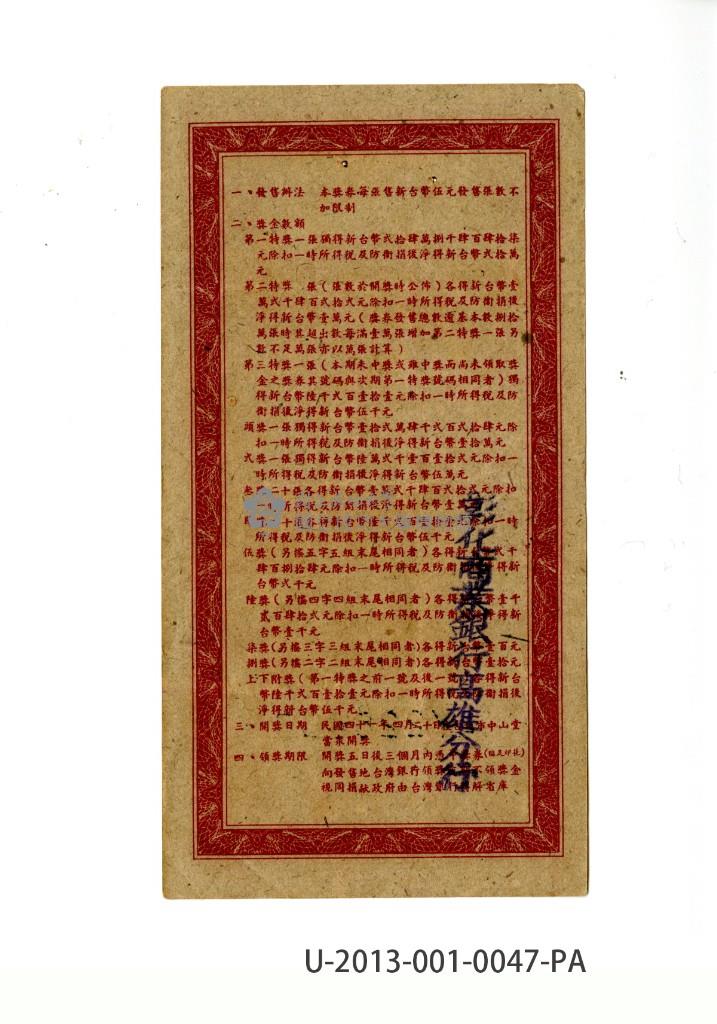 一、發售辦法　本獎券每張售新台幣伍元發售張數不
加限制
二、獎金數額
第一特獎一張獨得新台幣弍拾肆萬捌千肆百肆拾柒
元除扣一時所得稅及防衛捐後淨得新台幣弍拾萬
元
第二特獎　張(張數於開獎時公佈)各得新台幣壹
萬弍千肆百弍拾元除扣一時所得稅及防衛捐後
淨得新台幣壹萬元(獎券發售總數適基本數捌拾
萬張時其超出數每滿壹萬張增加第二特獎一張另
數不足萬張亦以萬張計算)
第三特獎一張(本期未中獎或雖中獎而尚未領取獎
金之獎券其號碼與次期第一特獎號碼相同者)獨
得新台幣陸千弍百壹拾壹元除扣一時所得稅及防
衛捐後淨得新台幣伍千元
頭獎一張獨得新台幣壹拾弍萬肆千弍百弍拾元除
扣一時所得稅及防衛捐後淨得新台幣壹拾萬元
弍獎一張獨得新台幣陸萬弍千壹百壹拾弍元除扣一
時所得稅及防衛捐後淨得新台幣伍萬元
叁獎二十張各得新台幣壹萬弍千肆百弍拾弍元除扣
一時所得稅及防衛捐後淨得新台幣壹萬
十張各得新台幣陸千弍百
一時
所得稅及防衛捐後淨得新台幣伍千
伍獎(另搖五字五組末尾相同者)各得新台幣弍千
肆百捌拾肆元除扣一時所得稅及防衛
得新
台幣弍千元
陸獎(另搖四字四組末尾相同者)各得
幣壹千
貳百肆拾弍元除扣一時所得稅及防
得新
台幣壹千元
柒獎(另搖三字三組末尾相同者)各得
壹百元
捌獎(另搖二字二組末尾相同者)各得
拾元
上下附獎(第一特獎之前一號及後一號)各得新台
幣陸千弍百壹拾壹元除扣一時所得
衛捐後
淨得新台幣伍千元
三、開獎日期　民國四十一年四月二十日
中山堂
當眾開獎
四、領獎期限　開獎五日後三個月內憑
券
向發售地台灣銀行領獎
領獎金
視同捐獻政府由台灣
解省庫
彰化商業銀行高雄分行
U-2013-001-0047-PA